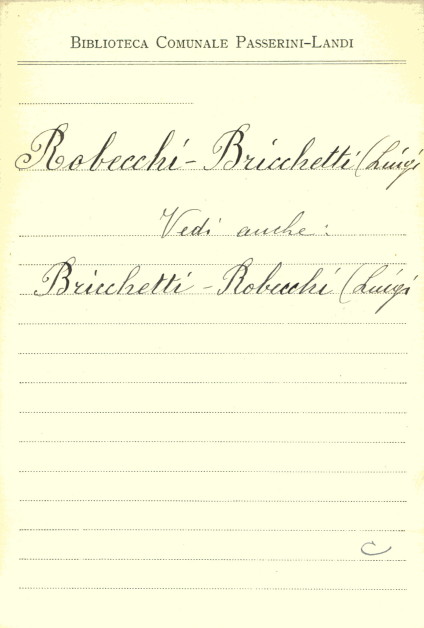 BIBLIOTECA COMUNALE PASSERINI-LANDI
Robecchi-Bricchetti (Luigi
Vedi anche:
Bricchetti-Robecchi (Luigi
C